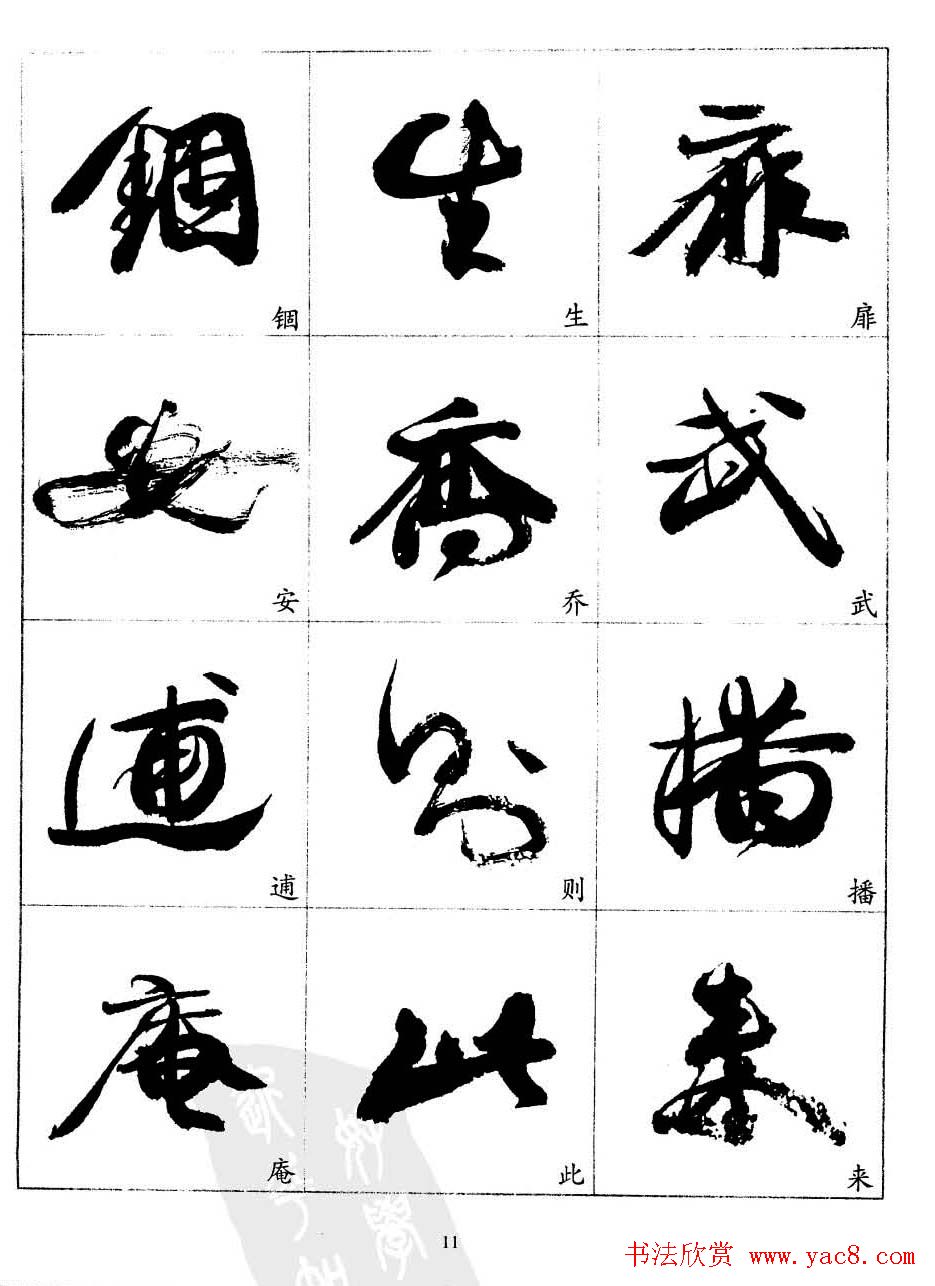 錮 生 扉
锢 生 扉
安 喬 武
安 乔 武
逋 則 播
逋 则 播
庵 此 來
庵 此 来
11
书法欣赏 www.yac8.com